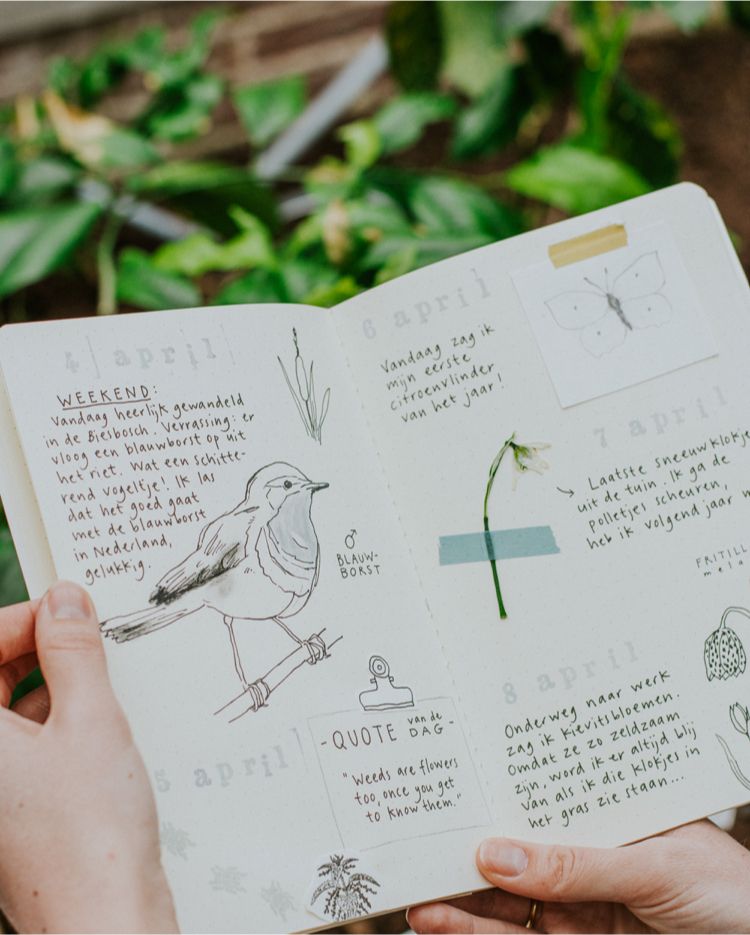 4 april
WEEKEND:
Vandaag heerlijk gewandeld
in de Biesbosch. Verrassing: er
vloog een blauwborst op uit
het riet. Wat een schitte-
rend vogeltje! Ik las
dat het goed gaat
met de blauwborst
in Nederland,
gelukkig.
♂
BLAUW-
BORST
5 april
-QUOTE van de DAG-
"Weeds are flowers
too, once you get
to know them."
6 april
Vandaag zag ik
mijn eerste
citroenvlinder
van het jaar!
7 april
Laatste sneeuwklokje
uit de tuin. Ik ga de
polletjes scheuren,
heb ik volgend jaar
FRITILL
mela
8 april
Onderweg naar werk
zag ik kievitsbloemen.
Omdat ze zo zeldzaam
zijn, word ik er altijd blij
van als ik die klokjes in
het gras zie staan...